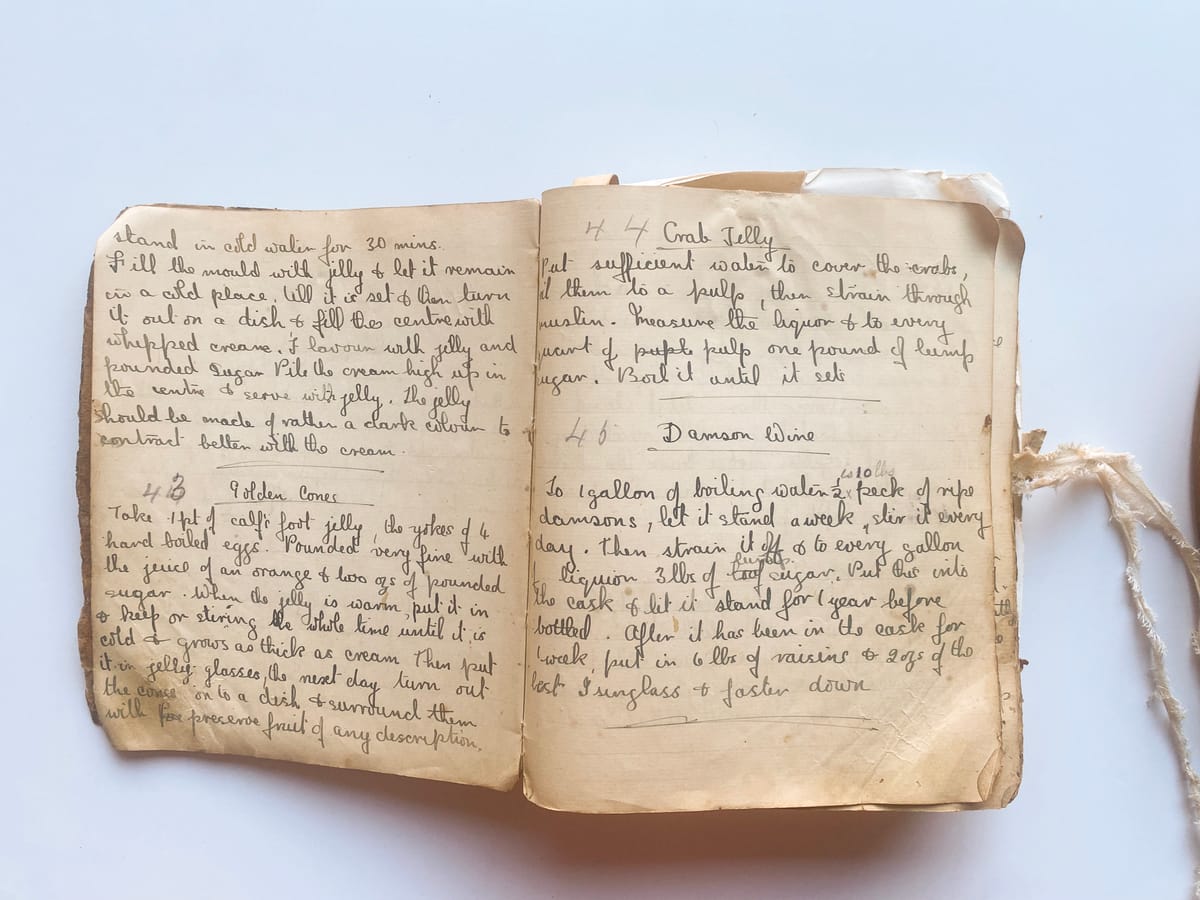 stand in cold water for 30 mins.
Fill the mould with jelly & let it remain
in a cold place, till it is set & then turn
it out on a dish & fill the centre with
whipped cream. Flavour with jelly and
pounded sugar Pile the cream high up in
the centre & serve with jelly. The jelly
should be made of rather a dark colour to
contract better with the cream.
43 Golden Cones
Take 1 pt of calf's foot jelly, the yokes of 4
hard boiled eggs. Pounded very fine with
the juice of an orange & two ozs of pounded
sugar. When the jelly is warm, put it in
& keep or stiring the whole time until it is
cold & grows as thick as cream Then put
it in jelly glasses, the next day turn out
the cones on to a dish & surround them
with preserve fruit of any description.
44 Crab Jelly
Put sufficient water to cover the crabs,
il them to a pulp, then strain through
muslin. Measure the liquor & to every
quart of pulp one pound of lump
sugar. Boil it until it sets
45 Damson Wine
10 lbs
To 1 gallon of boiling water ½ peck of ripe
damsons, let it stand a week, stir it every
day. Then strain it off & to every gallon
liquior 3 lbs of loaf sugar. Put this into
the cask & let it stand for 1 year before
bottled. After it has been in the cask for
1 week, put in 6 lbs of raisins & 2 ozs of the
best Isunglass & faster down